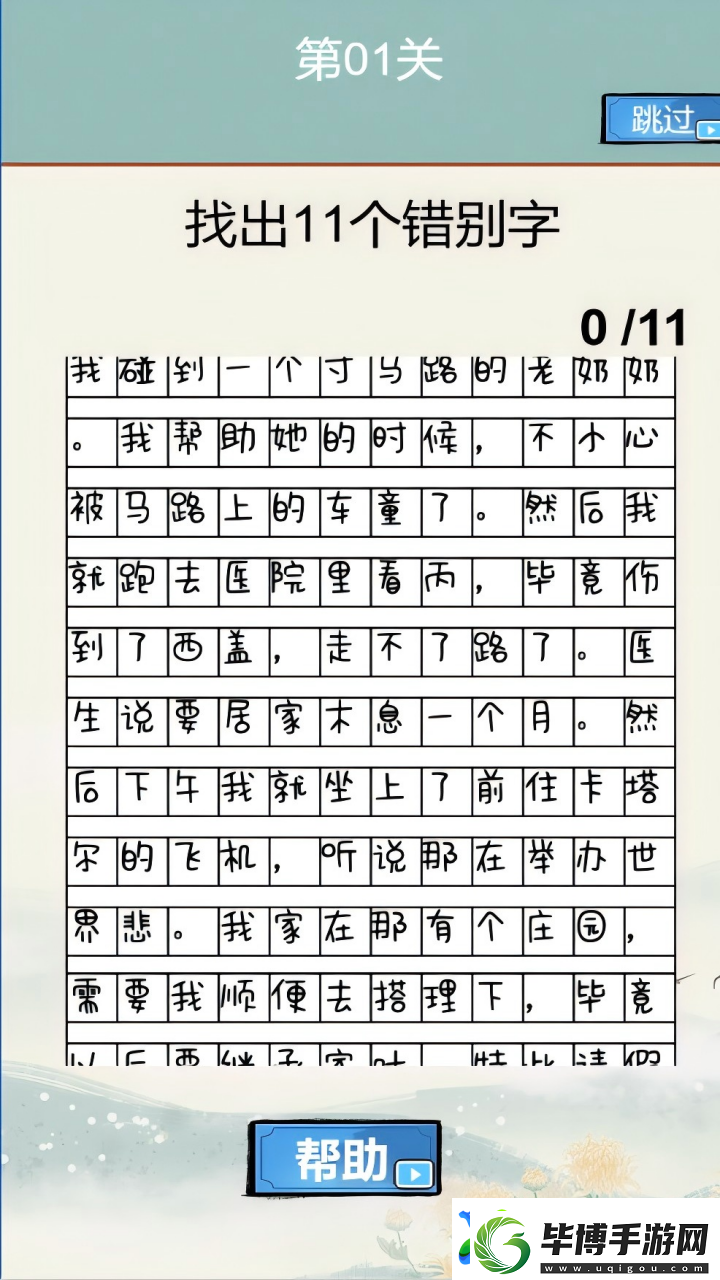 第01关
跳过
找出11个错别字
0 /11
我碰到一个寸马路的老奶奶
。我帮助她的时候，不小心
被马路上的车童了。然后我
就跑去医院里看丙，毕竟伤
到了西盖，走不了路了。医
生说要居家木息一个月。然
后下午我就坐上了前住卡塔
尔的飞机，听说那在举办世
界悲。我家在那有个庄园，
需要我顺便去搭理下，毕竟
帮助
毕博手游网
www.uqigou.com